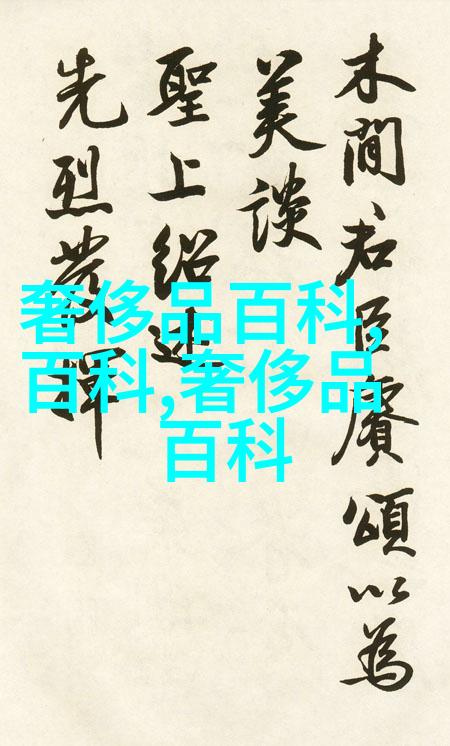 木間君臣賡頌以為
美談
聖上紹述
先烈發揮
奢侈品百科,
百科,奢侈品
百科